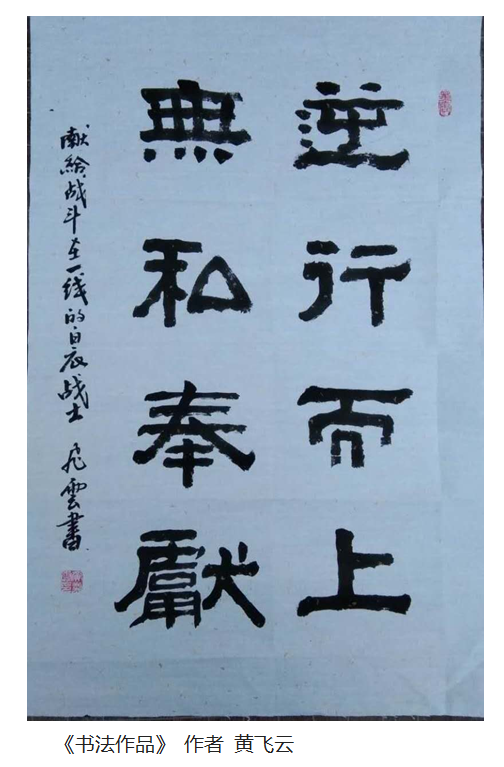 逆行而上
無私奉獻
献给战斗在一线的白衣战士 飛雲書
《书法作品》 作者 黄飞云